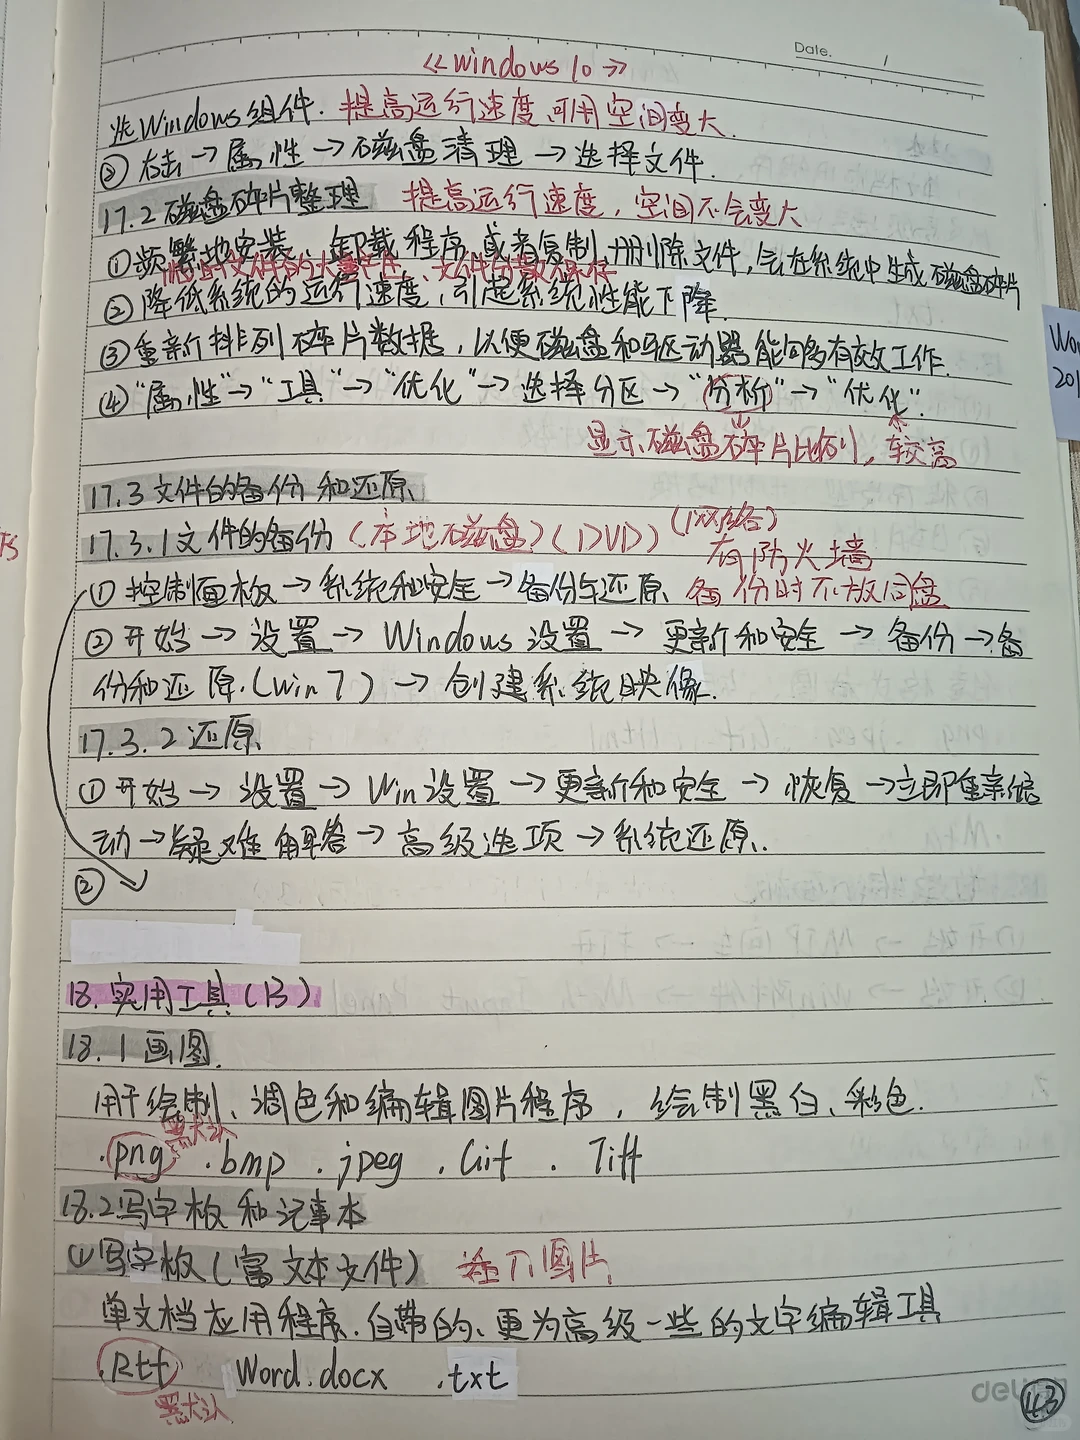 Date.
《windows 10》
选Windows组件. 提高运行速度,可用空间变大.
② 右击→属性→磁盘清理→选择文件.
17.2 磁盘碎片整理 提高运行速度, 空间不会变大
①频繁地安装、卸载程序或者复制、删除文件,会在系统中生成磁盘碎片
②降低系统的运行速度,引起系统性能下降.
③重新排列碎片数据,以便磁盘和驱动器能够有效工作.
④“属性”→“工具”→“优化”→选择分区→“分析”→“优化”.
显示磁盘碎片比例, 较高
17.3 文件的备份和还原
17.3.1 文件的备份(本地磁盘)(DVD)(网络)
有防火墙
①控制面板→系统和安全→备份与还原 备份时不放同盘
②开始→设置→Windows设置→更新和安全→备份→备
份和还原.(Win7)→创建系统映像.
17.3.2 还原
①开始→设置→Win设置→更新和安全→恢复→立即重新启
动→疑难解答→高级选项→系统还原.
②
18. 实用工具(B)
18.1 画图.
用于绘制、调色和编辑图片程序, 绘制黑白、彩色.
黑犬认
.png .bmp .jpeg .Gif . Tiff
18.2 写字板和记事本
①写字板(富文本文件) 插入图片
单文档应用程序.自带的、更为高级一些的文字编辑工具
.Rtf Word.docx .txt
黑犬认
deli
43
Wor
201